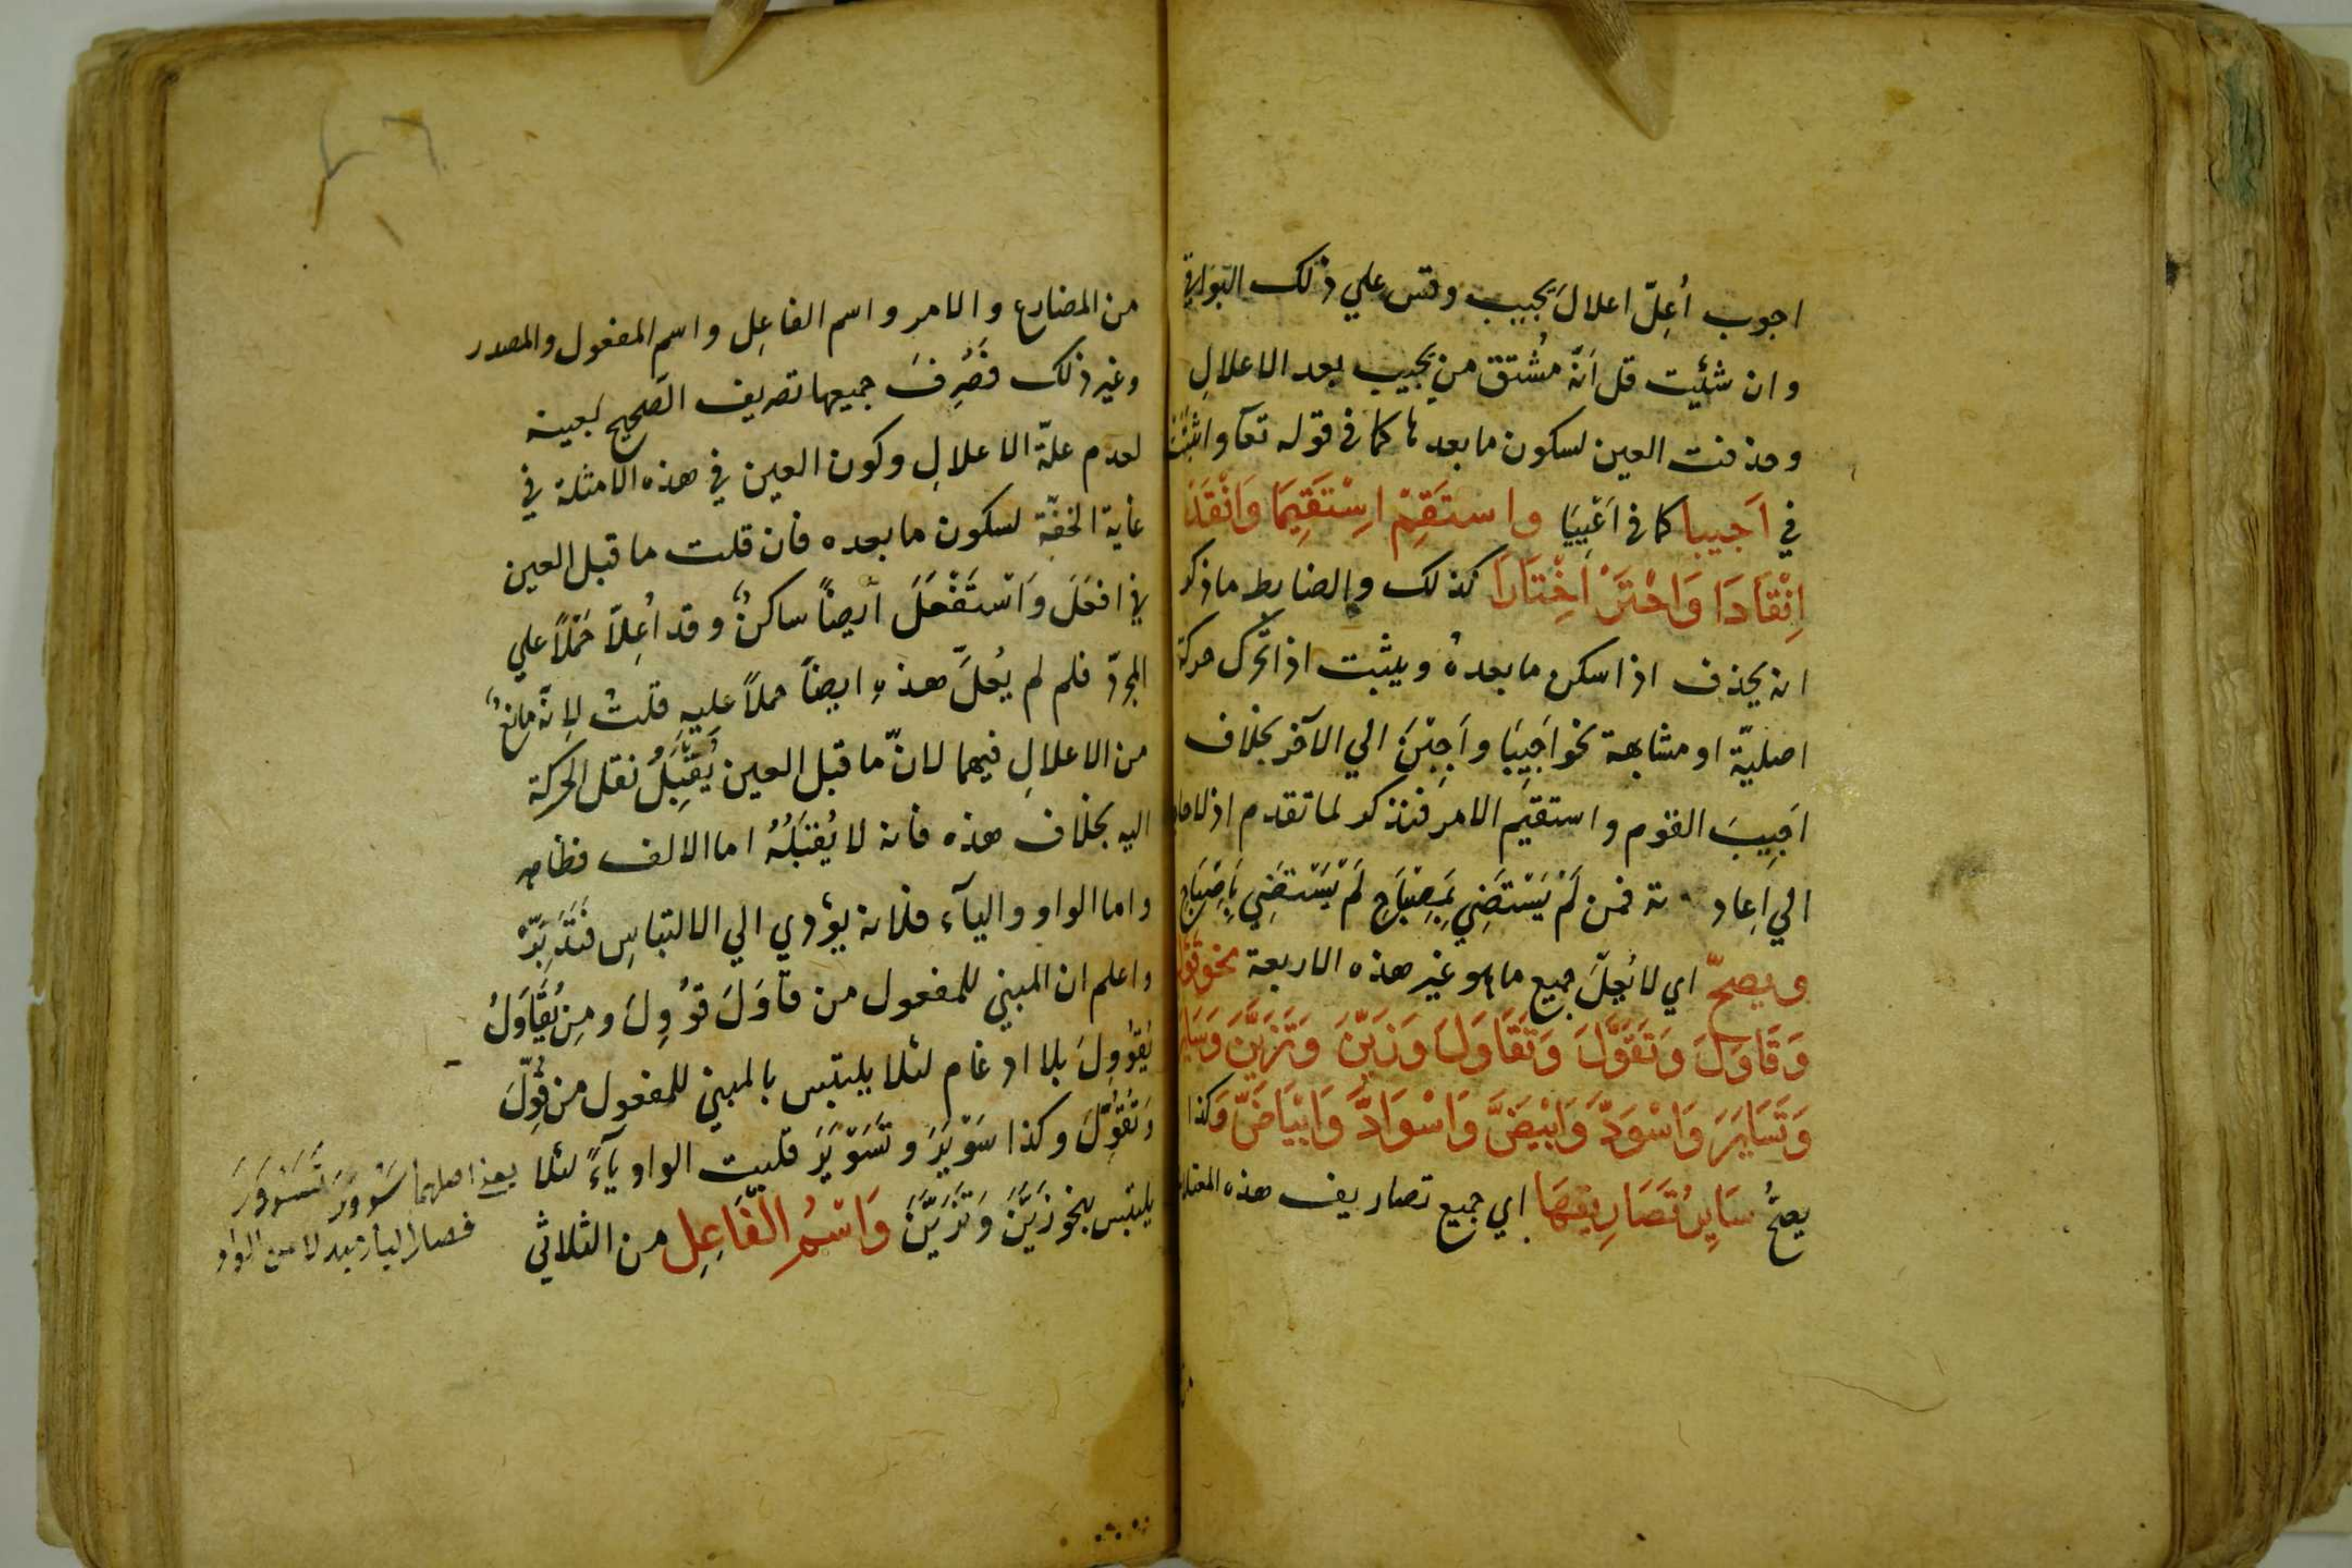 اجوب أُعِلّ اعلالَ يجيب وقس علي ذلك البواقي
وان شئيت قل انّه مُشتق من يجيب بعد الاعلالِ
وحذفت العين لسكون ما بعدها كما في قوله تعآ واثبتت
في اَجيبا كما في اَغِيبَا واستَقِمْ اِسْتَقِيمَا وَانْقَدْ
اِنْقَادَا وَاخْتَرْ اخْتَارَا كذلك والضابط ما ذكر
انه يحذف اذا سكن ما بعدهُ ويثبت اذا تحرك حركة
اصليّة او مشابهة نحو اَجِيبَا واَجِبْنَ الي الآخر بخلاف
اَجِيبَ القوم واستقيم الامر فتذكر لما تقدم اذ لا حاجة
الي اِعاد ته فمن لَمْ يَسْتَضِي بِمِصْبَاحٍ لَمْ يَسْتَضِي بِاِصْبَاحٍ
ويصحّ اي لا يُعِلّ جميع ما هو غير هذه الاربعة نحو قَوَّلَ
وَقَاوَلَ وَتَقَوَّلَ وَتَقَاوَلَ وَزَيَّنَ وَتَزَيَّنَ وَسَايَرَ
وَتَسَايَرَ وَاسْوَدَّ وَابْيَضَّ وَاسْوَادَّ وَابْيَاضَّ وَكذا
يصحُّ سَايِرُ تَصَارِيفِهَا اي جميع تصاريف هذه
من المضارع والامر واسم الفاعِل واسم المفعول والمصدر
وغير ذلك فصُرِفَ جميعها تصريف الصحيح بعينه
لعدم علّة الاعلالِ وكون العين في هذه الامثلة في
غاية الخفّة لسكون ما بعده فان قلت ما قبل العين
في افعَلَ وَاسْتَفْعَلَ ايضاً ساكنٌ وقد اُعِلّا حَمْلاً علي
المجرّد فلم لم يُعلَّ هذهِ ايضاً حملاً عليهِ قلتُ لِانّه مانعٌ
من الاعلالِ فيهما لانّ ما قبل العين يُقْبِلُ نقل الحركة
اليه بخلاف هذه فانه لا يُقبَلُهُ اما الالف فظاهر
واما الواو واليآء فلانه يؤدي الي الالتباسِ فَتَدَبَّرْ
واعلم ان المبني للمفعول من قاوَلَ قوُوِلَ ومِن يُقَاوَلُ
يُقوُوِلَ بلا ادغام لئلا يلتبس بالمبني للمفعول من قُوِّلَ
وَتُقُوِّلَ وكذا سَوْيَرَ وتَسَوْيَرَ قلبت الواو يآءً لئلا
يلتبس بنحو زَيَّنَ وَتَزَيَّنَ وَاسْمُ الفَاعِلِ من الثلاثي
يعني اصلهما سَوْوَرَ تَسَوْوَرَ
فصار اليا بدلا من الواو